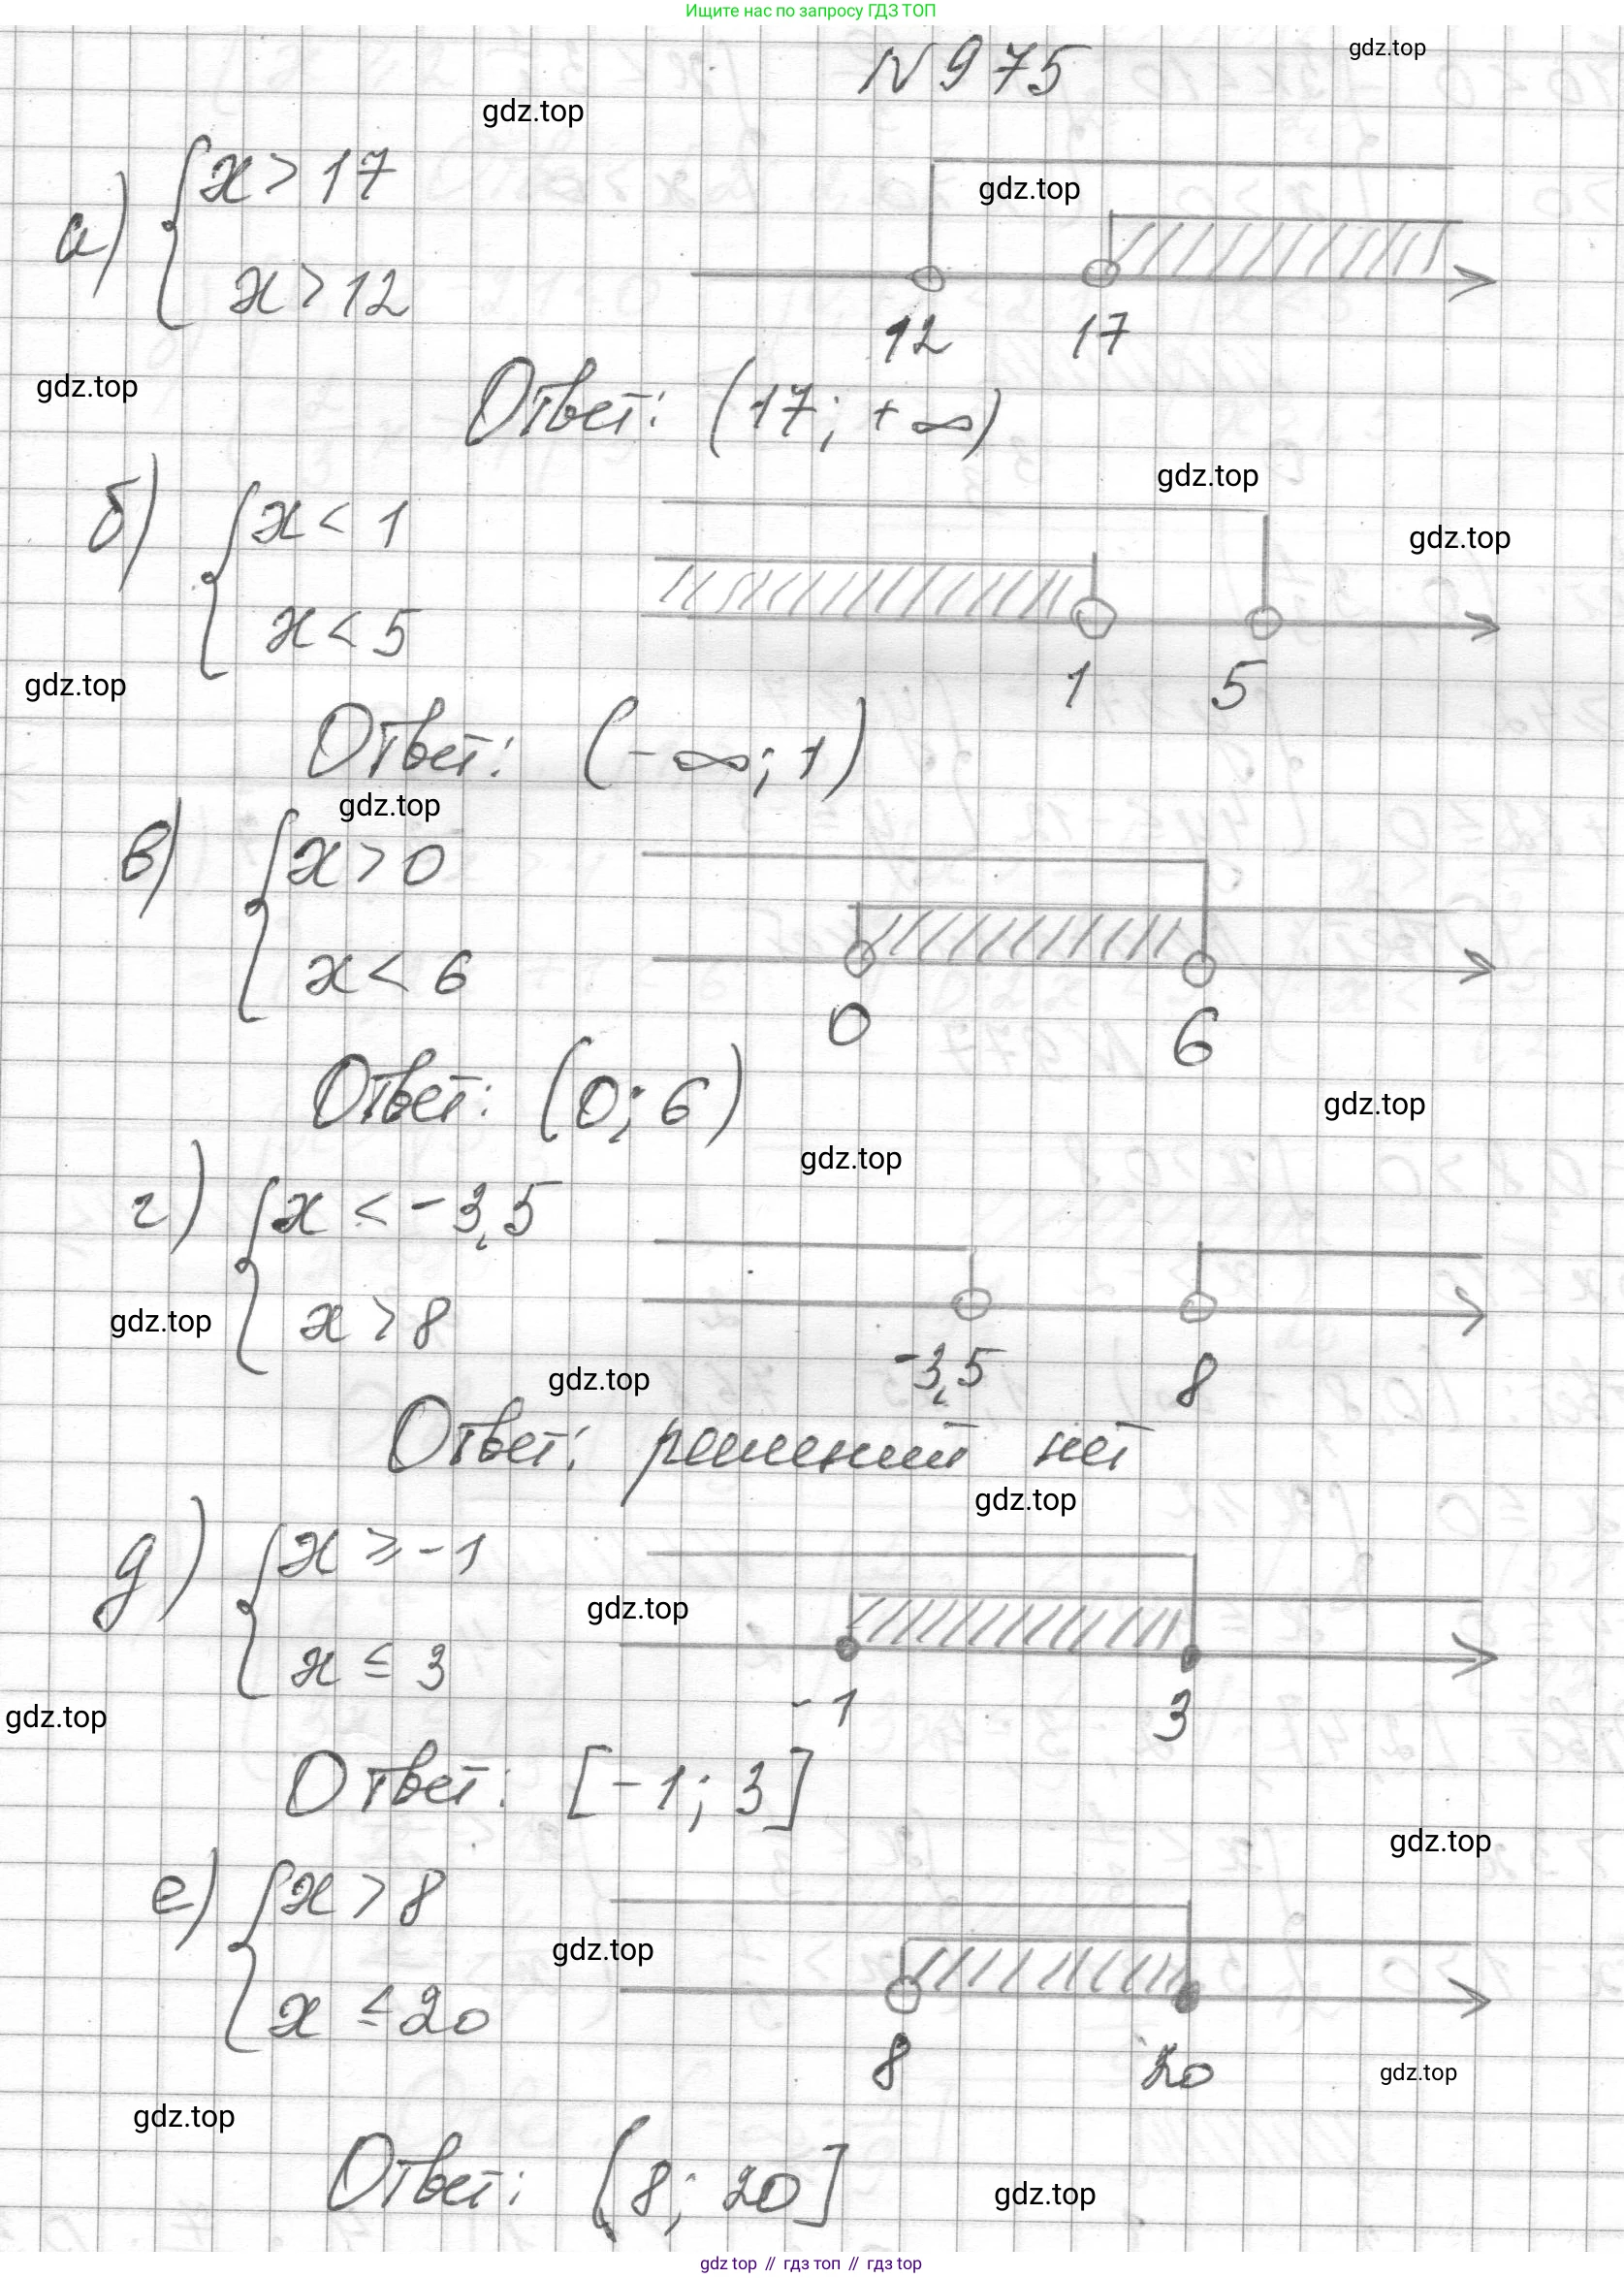 Ищите нас по запросу ГДЗ ТОП
N 975
gdz.top
gdz.top
а) { x > 17
x > 12
gdz.top
12 17
gdz.top
Ответ: (17; +∞)
gdz.top
б) { x < 1
x < 5
gdz.top
1 5
gdz.top
Ответ: (-∞; 1)
gdz.top
в) { x > 0
x < 6
0 6
Ответ: (0; 6)
gdz.top
gdz.top
г) { x < -3,5
x > 8
gdz.top
-3,5 8
gdz.top
Ответ: решений нет
gdz.top
д) { x ⩾ -1
x ≤ 3
gdz.top
-1 3
gdz.top
Ответ: [-1; 3]
gdz.top
е) { x > 8
x ≤ 20
gdz.top
8 20
gdz.top
gdz.top
Ответ: (8; 20]
gdz.top
gdz top // гдз топ // гдз top